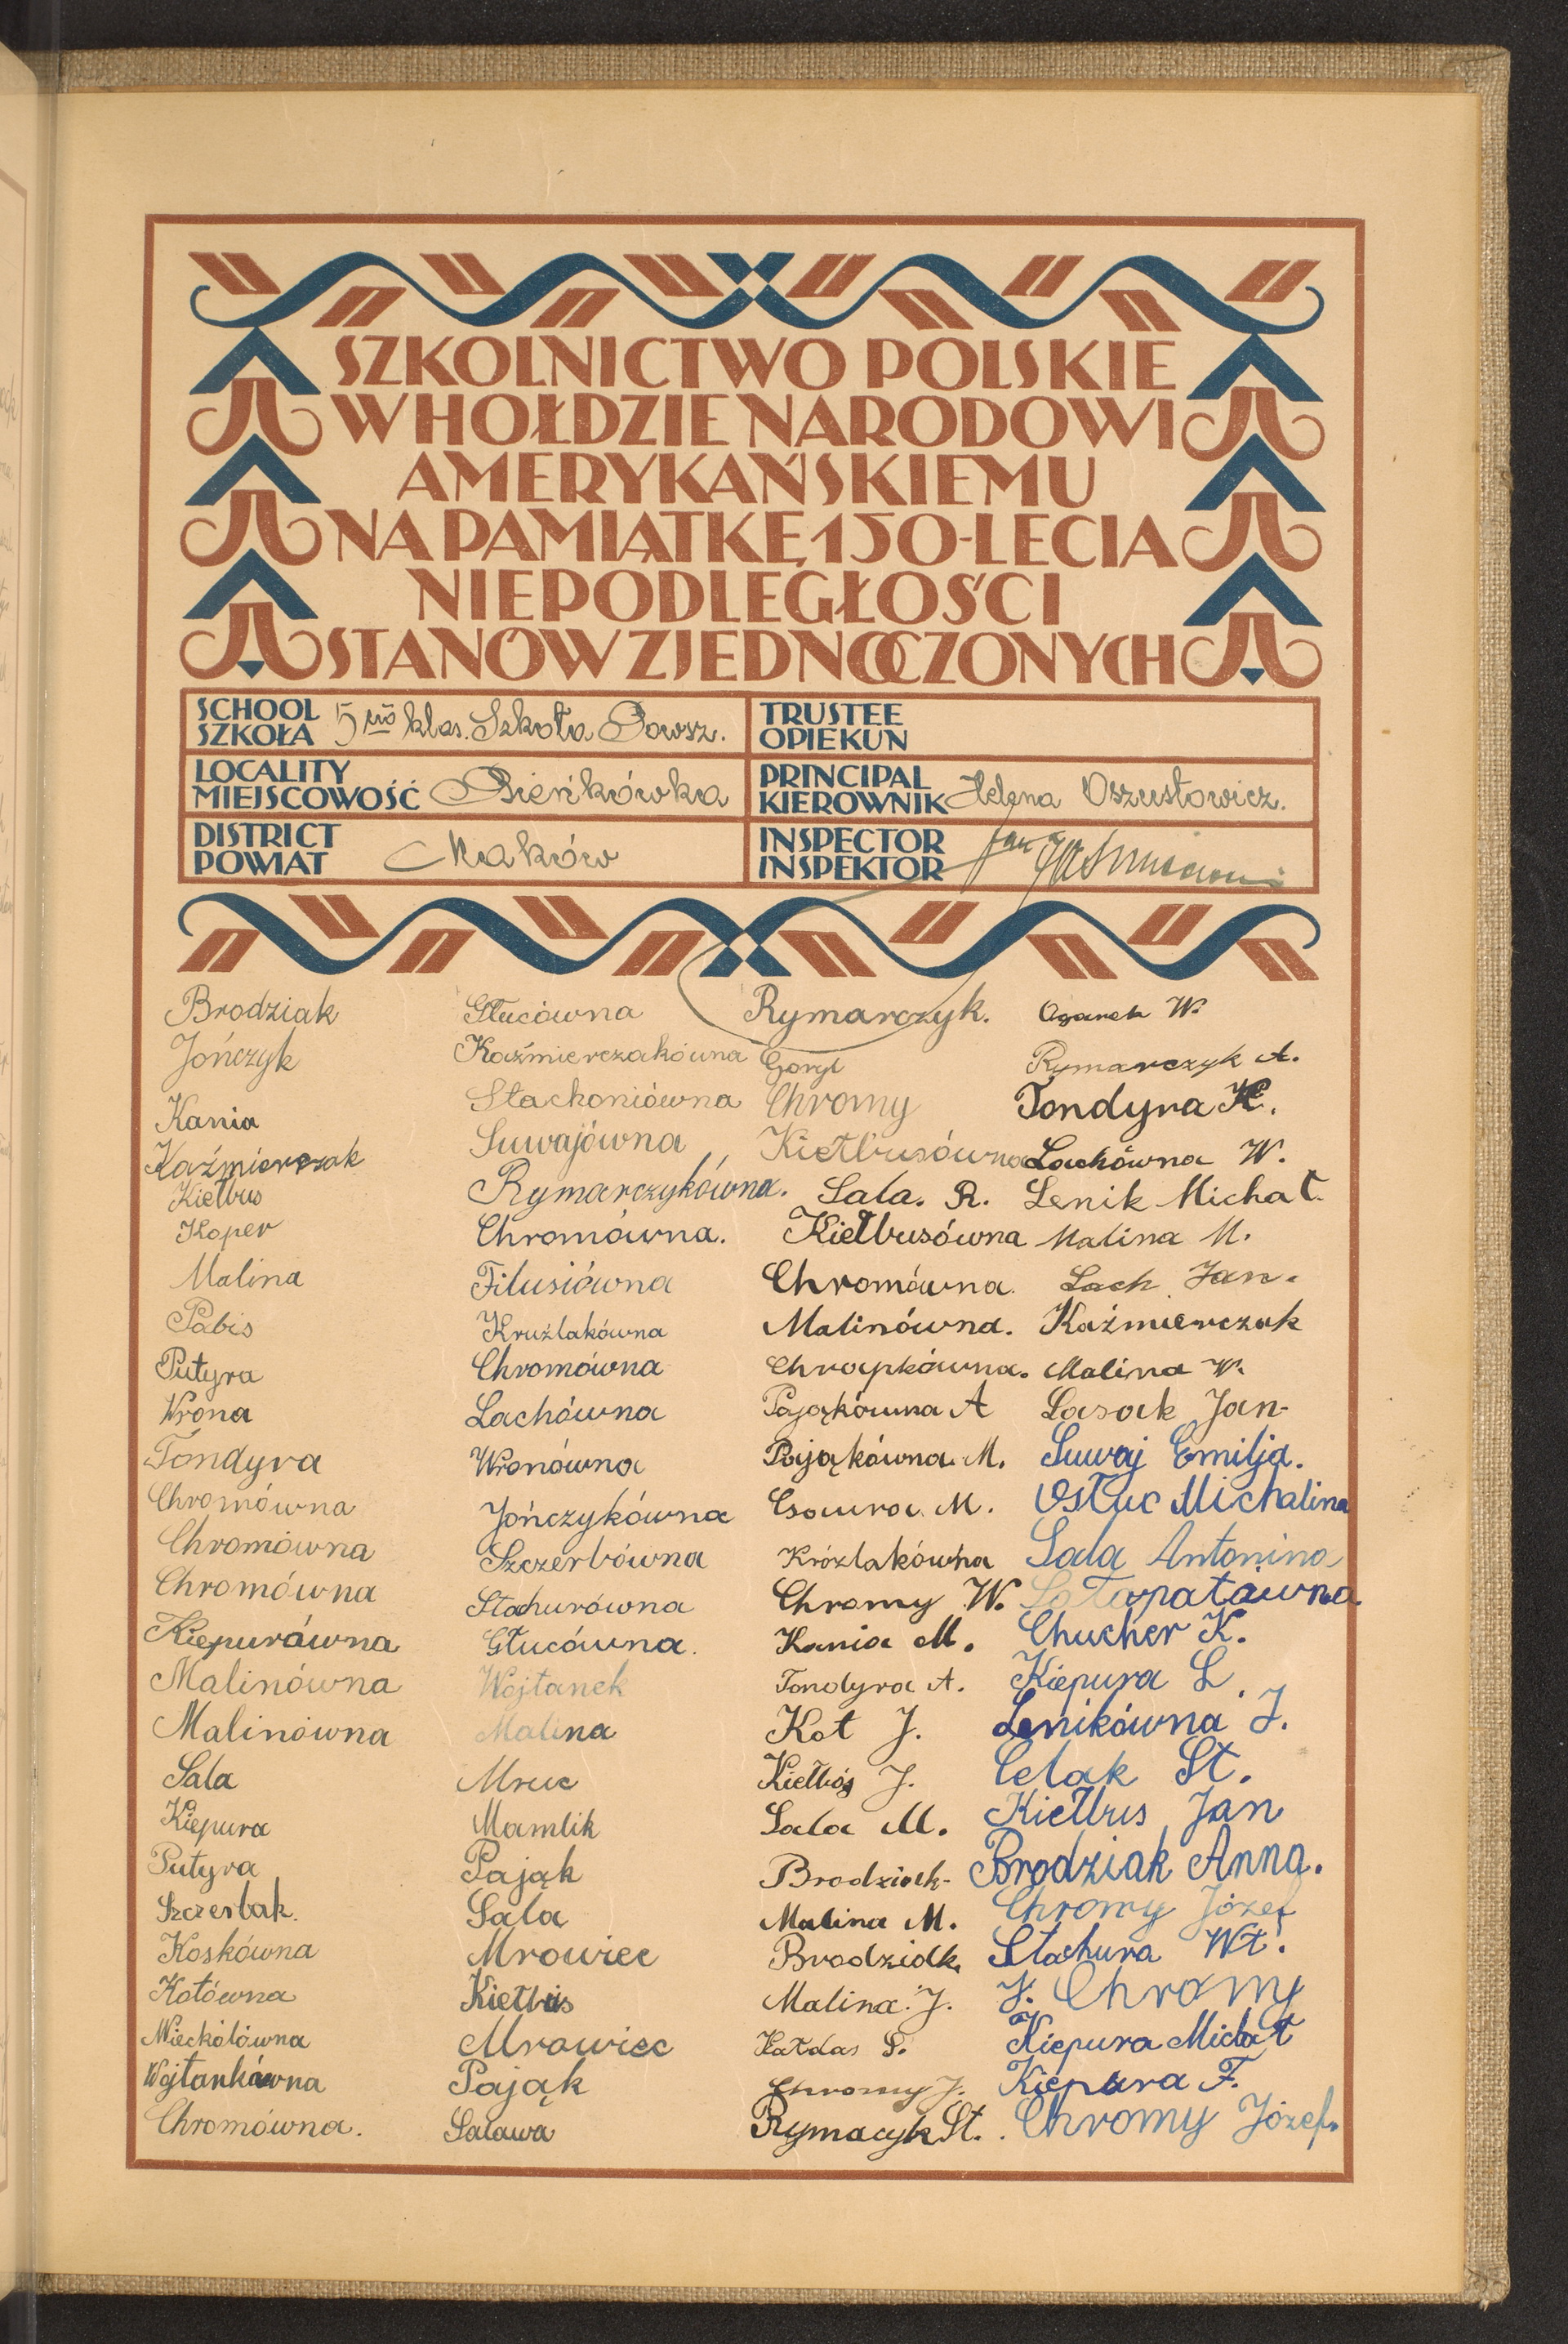 SZKOLNICTWO POLSKIE
W HOŁDZIE NARODOWI
AMERYKAŃSKIEMU
NA PAMIĄTKĘ 150-LECIA
NIEPODLEGŁOŚCI
STANÓW ZJEDNOCZONYCH
SCHOOL
SZKOŁA
5cio klas. Szkoła Powsz.
TRUSTEE
OPIEKUN
LOCALITY
MIEJSCOWOŚĆ
Bieńkówka
PRINCIPAL
KIEROWNIK
Helena Oszustowicz.
DISTRICT
POWIAT
Maków
INSPECTOR
INSPEKTOR
Jan
Brodziak
Jończyk
Kania
Kaźmierczak
Kiełbus
Koper
Malina
Pabis
Putyra
Wrona
Tóndyra
Chromówna
Chromówna
Chromówna
Kiepurówna
Malinówna
Malinówna
Sala
Kiepura
Putyra
Szczerbak.
Koskówna
Kotówna
Mieckólówna
Wojtankówna
Chromówna.
Głucówna
Kaźmierczakówna
Stachoniówna
Suwajówna
Rymarczykówna.
Chromówna.
Filusiówna
Kruźlakówna
Chromówna
Lachówna
Wronówna
Jończykówna
Szczerbówna
Stachurówna
Głucówna.
Wojtanek
Malina
Mruc
Mamlik
Pająk
Sala
Mrowiec
Kiełbus
Mrowiec
Pająk
Salawa
Rymarczyk.
Goryl
Chromy
Kiełbusówna
Sala. R.
Kiełbusówna
Chromówna.
Malinówna.
Chrapkówna.
Pająkówna A
Pająkówna M.
M.
Krózlakówna
Chromy W.
Kania M.
Tondyra A.
Kot J.
Kiełbós J.
Sala M.
Brodziak
Malina M.
Brodziak
Malina J.
Hałdas S.
Chromy J.
Rymacyk St.
Ogarek W.
Rymarczyk A.
Tondyra K.
Lachówna W.
Lenik Michał.
Malina M.
Lach Jan.
Kaźmierczak
Malina W.
Lasak Jan
Suwaj Emilja.
Ostuc Michalina
Sala Antonina
Sałapatówna
Chucher K.
Kiepura L.
Lenikówna J.
Celak St.
Kiełbus Jan
Brodziak Anna.
Chromy Józef
Stachura Wł.
J. Chromy
Kiepura Michał
Kiepura F.
Chromy Józef.